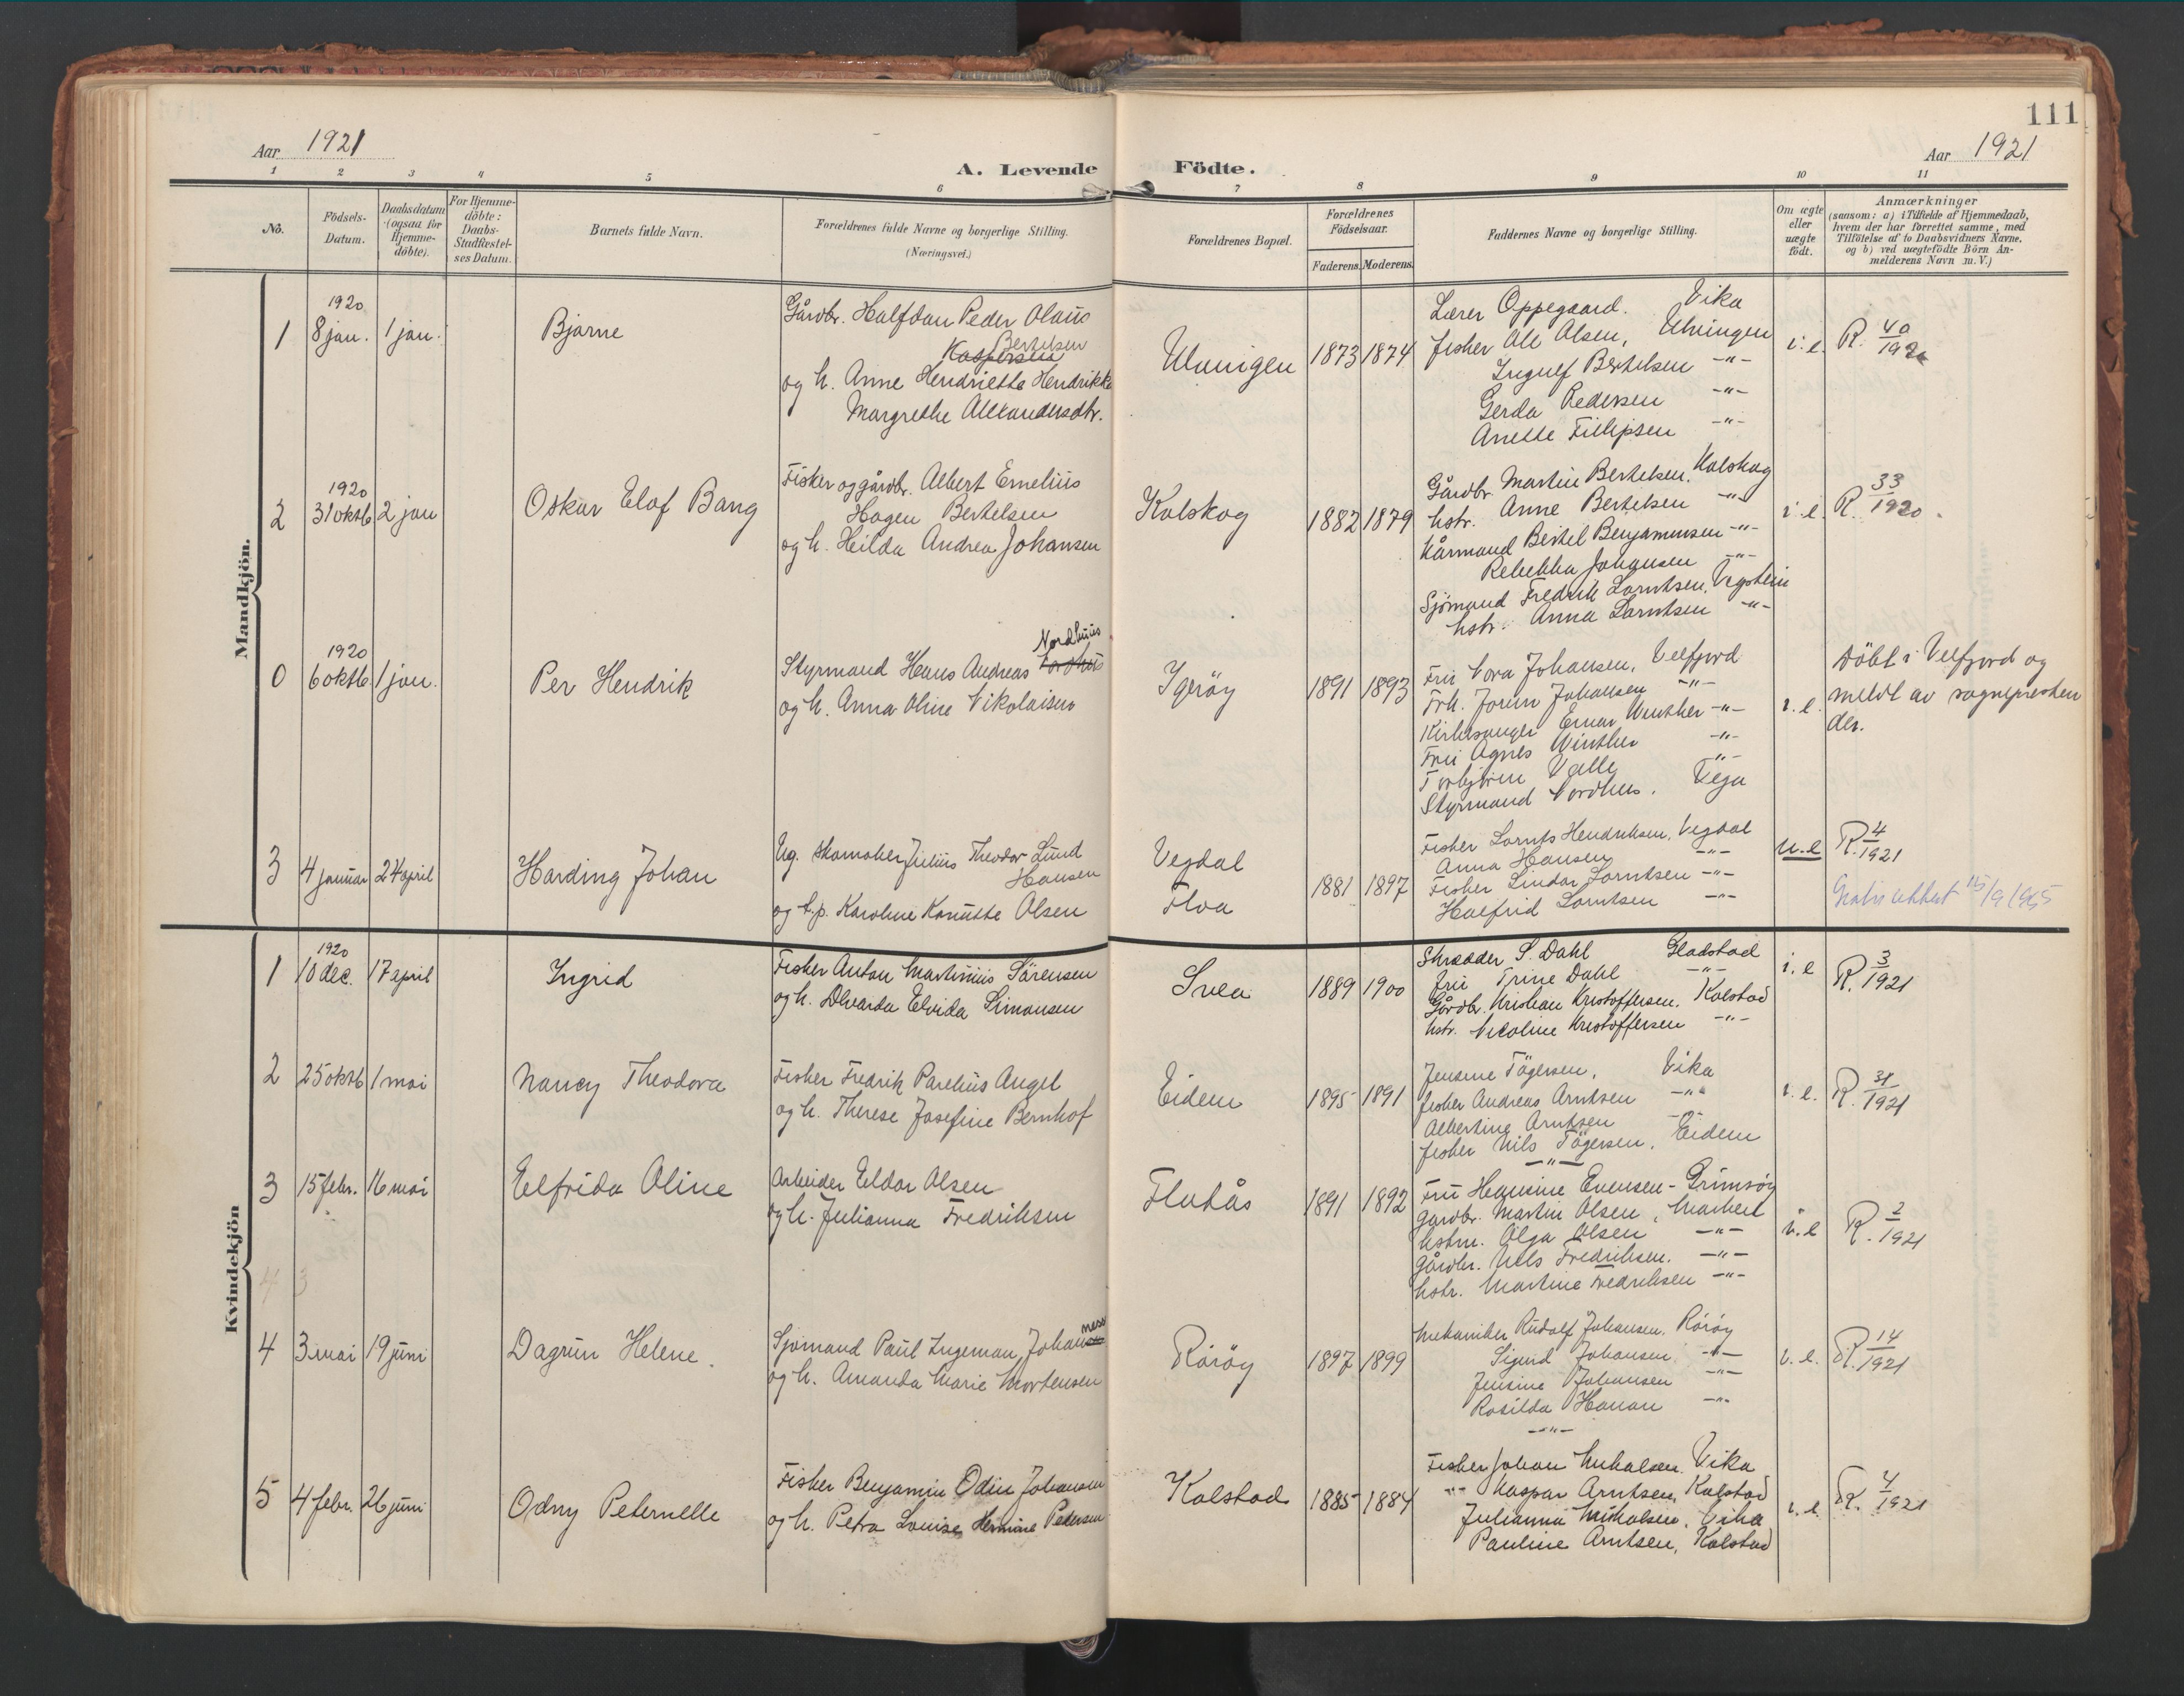 111
Aar 1921
A. Levende Födte.
Aar 1921
1 2 3 4 5 6 7 8 9 10 11
No.
Födsels-
Datum.
Daabsdatum
(ogsaa for
Hjemme-
döbte).
For Hjemme-
döbte:
Daabs-
Stadfæstel-
ses Datum.
Barnets fulde Navn.
Forældrenes fulde Navne og borgerlige Stilling.
(Næringsvei.)
Forældrenes Bopæl.
Forældrenes
Födselsaar.
Faderens. Moderens.
Faddernes Navne og borgerlige Stilling.
Om ægte
eller
uægte
födt.
Anmærkninger
(saasom: a) i Tilfælde af Hjemmedaab,
hvem der har forrettet samme, med
Tilföielse af to Daabsvidners Navne,
og b) ved uægtefödte Börn An-
melderens Navn m. V.)
Mandkjön.
1 1920 8 jan. 1 jan. Bjarne
Gårdbr. Halfdan Peder Olaus
Bertelsen
Kaspersen
og h. Anne Hendriette Hendrikke
Margrethe Alexandersdtr.
Ulvingen 1873 1874
Lærer Oppegaard. Vika
fisker Ole Olsen, Ulvingen
Ingulf Bertelsen -"-
Gerda Pedersen -"-
Anette Fillipsen -"-
i. e. R. 40/1920
2 1920 31 oktb 2 jan Oskar Elof Bang
Fisker og gårdbr. Albert Emelius
Hagen Bertelsen
og h. Hilda Andrea Johansen
Kalskag 1882 1879
Gårdbr. Martin Bertelsen, Kalskag
hstr. Anne Bertelsen -"-
Kårmand Bertel Benjaminsen -"-
Rebekka Johansen -"-
Sjömand Fredrik Lorntsen, Vegstein
hstr. Anna Lorntsen -"-
i. e. R. 33/1920.
0 1920 6 oktb. 1 jan. Per Hendrik
Nordhuus
Styrmand Hans Andreas
og h. Anna Oline Nikolaisen
Ygeröy 1891 1893
Fru Nora Johansen, Velfjord
Frk. Jorun Johansen -"-
Kirkesanger Einar Winther -"-
Fru Agnes Winther -"-
Torbjörn Valle -"-
Styrmand Nordhus. Vega
i. e.
Döbt i Velfjord og
meldt av sognepresten
der.
3 4 januar 24 april Harding Johan
Ug. skomaker Julius Theodor Lund
Hansen
og t.p. Karoline Kanutte Olsen
Vegdal
Floa
1881 1897
Fisker Lornts Hendriksen, Vegdal
Anna Hansen -"-
Fisker Lindor Lorntsen -"-
Halfrid Lorntsen -"-
u. e R. 4/1921
15/9 1955
Kvindekjön
1 1920 10 dec. 17 april Ingrid
Fisker Anton Martinius Sörensen
og h. Alvarda Elvida Simonsen
Svea 1889 1900
Skrædder S. Dahl Gladstad
Fru Trine Dahl -"-
Gårdbr. Kristian Kristoffersen. Kalstad
hstr. Nicoline Kristoffersen -"-
i. e R. 3/1921
2 25 oktb 1 mai Nancy Theodora
Fisker Fredrik Parelius Angel
og h. Therese Josefine Bernhof
Eidem 1895 1891
Jensine Tögersen, Vika
fisker Andreas Arntsen -"-
Albertine Arntsen -"-
fisker Nils Tögersen, Eidem
-"-
i. e. R. 31/1921
3 15 febr. 16 mai Elfrida Oline
Arbeider Eldor Olsen
og h. Julianna Fredriksen
Flatås 1891 1892
Fru Hansine Evensen - Grimsöy
Gårdbr. Martin Olsen, Markert
hstru. Olga Olsen -"-
Gårdbr. Nils Fredriksen. -"-
hstr. Martine Fredriksen -"-
i. e R. 2/1921
4 3
4 3 mai 19 juni Dagrun Helene.
Sjömand Paul Ingeman Johanness
og h. Amanda Marie Mortensen
Röröy 1897 1899
Mekaniker Rudolf Johansen. Röröy
Sigurd Johansen -"-
Jensine Johansen -"-
Rosilda Hanan -"-
-"-
i. e. R. 14/1921
5 4 febr. 26 juni Odny Peternelle
Fisker Benjamin Odin Johansen
og h. Petra Louise Hermine Pedersen
Kalstad 1885 1884
Fisker Johan Mikalsen. Vika
-"- Kaspar Arntsen, Kalstad
Julianna Mikalsen, Vika
Pauline Arntsen, Kalstad
i. e. R. 4/1921